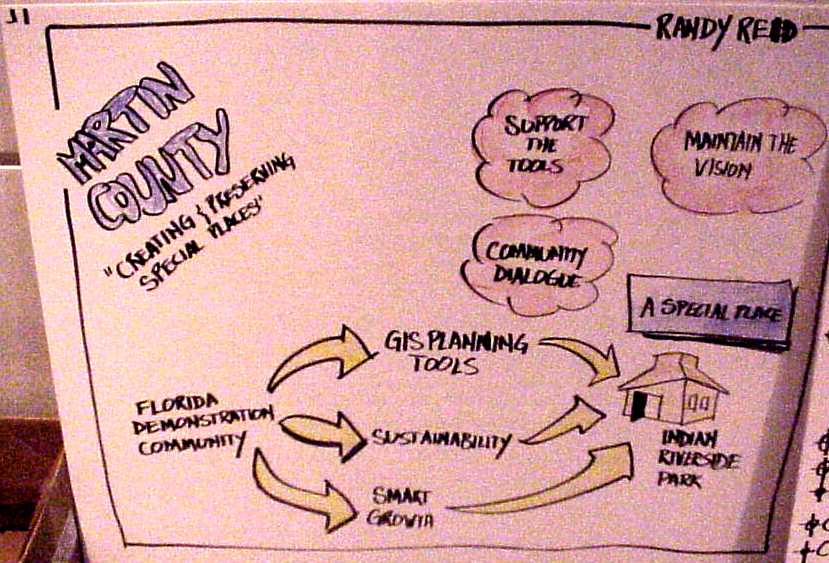 RANDY REID
MARTIN
COUNTY
"CREATING & PRESERVING
SPECIAL PLACES"
SUPPORT
THE
TOOLS
MAINTAIN THE
VISION
COMMUNITY
DIALOGUE
A SPECIAL PLACE
GIS PLANNING
TOOLS
FLORIDA
DEMONSTRATION
COMMUNITY
SUSTAINABILITY
SMART
GROWTH
INDIAN
RIVERSIDE
PARK